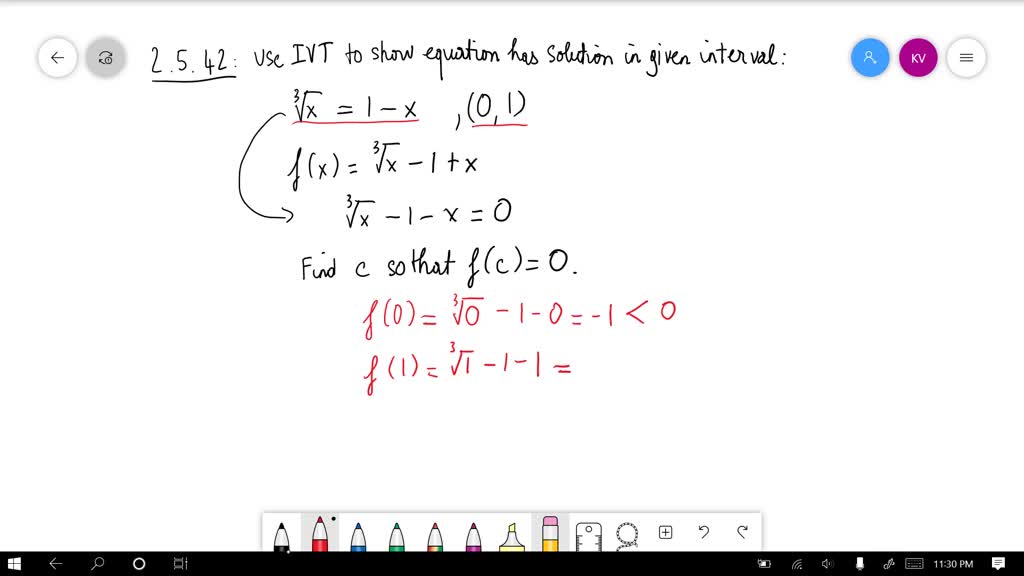 2.5.42: Use IVT to show equation has solution in given interval:
∛x = 1 - x , (0,1)
f(x) = ∛x - 1 + x
∛x - 1 - x = 0
Find c so that f(c) = 0.
f(0) = ∛0 - 1 - 0 = -1 < 0
f(1) = ∛1 - 1 - 1 =
KV
11:30 PM